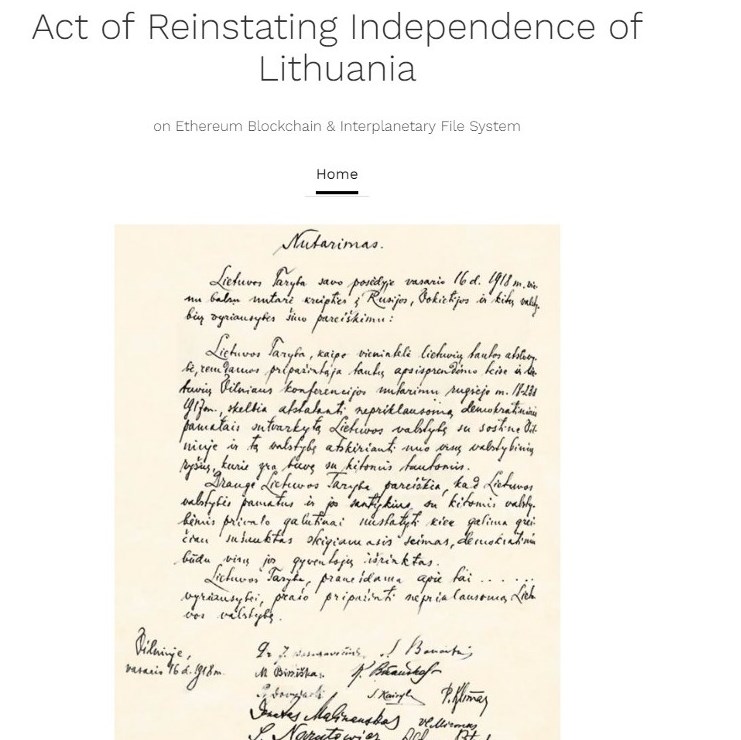 Act of Reinstating Independence of
Lithuania
on Ethereum Blockchain & Interplanetary File System
Home
Nutarimas.
Lietuvos Taryba savo posėdyje vasario 16 d. 1918 m. vie-
nu balsu nutarė kreiptis į Rusijos, Vokietijos ir kitų valsty-
bių vyriausybes šiuo pareiškimu:
Lietuvos Taryba, kaipo vienintelė lietuvių tautos atstovy-
bė, remdamos pripažintąja tautų apsisprendimo teise ir lie-
tuvių Vilniaus konferencijos nutarimu rugsėjo m. 18-23 d
1917 m., skelbia atstatanti nepriklausomą demokratiniais
pamatais sutvarkytą Lietuvos valstybę su sostine Vil-
niuje ir tą valstybę atskirianti nuo visų valstybinių
ryšių, kurie yra buvę su kitomis tautomis.
Drauge Lietuvos Taryba pareiškia, kad Lietuvos
valstybės pamatus ir jos santykius su kitomis valsty-
bėmis privalo galutinai nustatyti kiek galima grei-
čiau sušauktas steigiamasis seimas, demokratiniu
būdu visų jos gyventojų išrinktas.
Lietuvos Taryba, pranešdama apie tai ......
vyriausybei, prašo pripažinti nepriklausomą Lietu-
vos valstybę.
Vilniuje,
vasario 16 d. 1918 m.
M Biržiška
P. Klimas
Donatas Malinauskas
S. Narutowicz